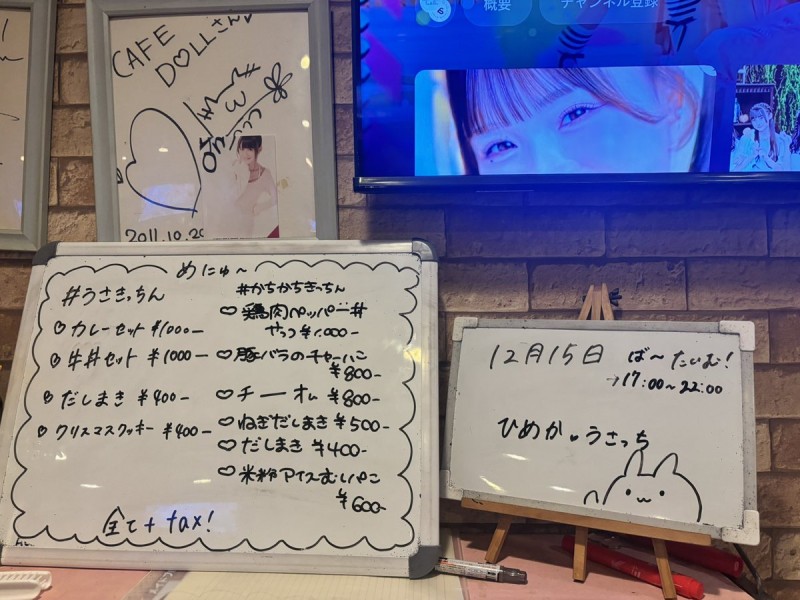 CAFE
DOLLさん
2011.10.20
概要
チャンネル登録
めにゅ〜
#うさきっちん
♡カレーセット ¥1000-
♡牛丼セット ¥1000-
♡だしまき ¥400-
♡クリスマスクッキー ¥400-
#かちかちきっちん
♡鶏肉ペッパー丼
やつ ¥1.000-
♡豚バラのチャーハン
¥800-
♡チーオム ¥800-
♡ねぎだしまき ¥500-
♡だしまき ¥400-
♡米粉アイスむしぱん
¥600-
全て+tax!
12月15日 ば〜たいむ!
→17:00~22:00
ひめか♥うさっち